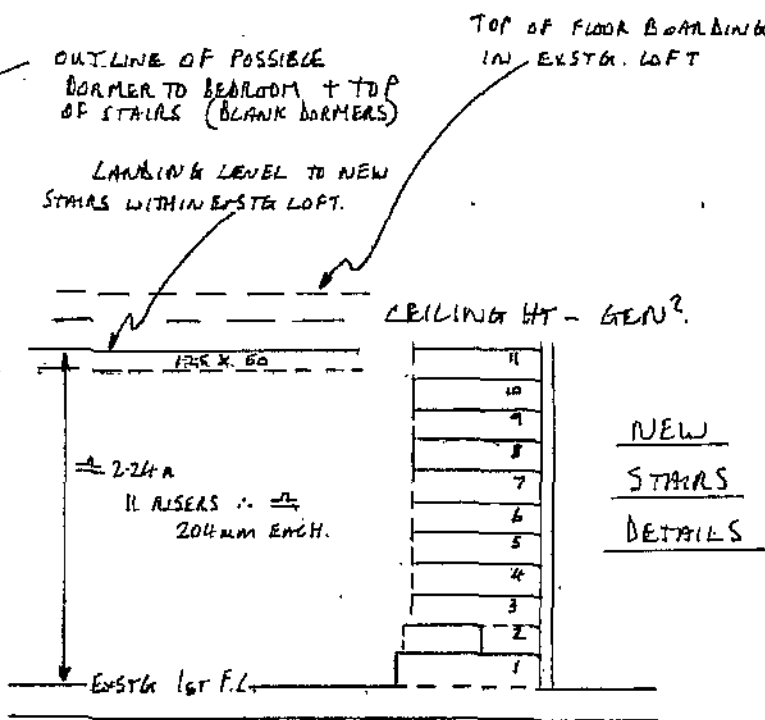 OUTLINE OF POSSIBLE
DORMER TO BEDROOM + TOP
OF STAIRS (BLANK DORMERS)
TOP OF FLOOR BOARDING
IN EXSTG. LOFT
LANDING LEVEL TO NEW
STAIRS WITHIN EXSTG LOFT.
CEILING HT - GEN².
125 X 50
11
10
9
8
7
6
5
4
3
2
1
2.24m
11 RISERS ∴
204mm EACH.
NEW
STAIRS
DETAILS
EXSTG 1ST F.L.